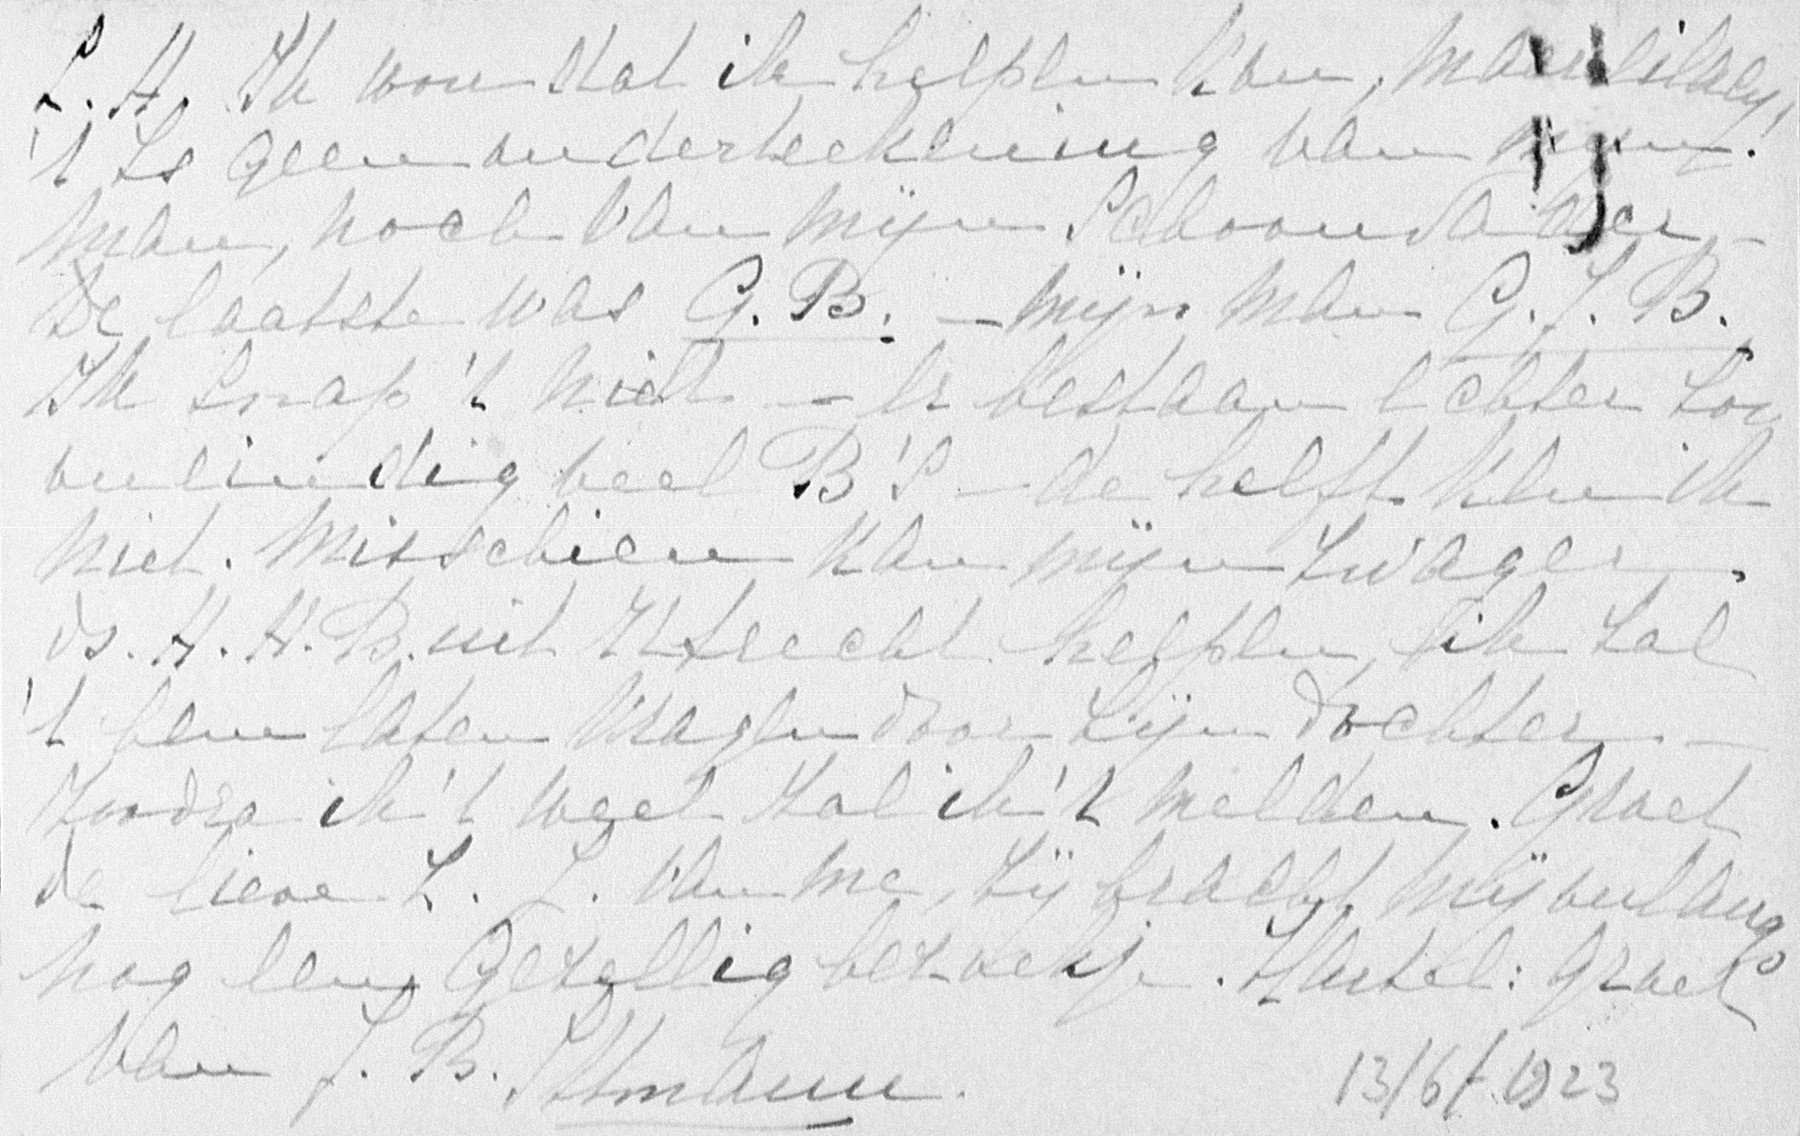 L. H. Ik wou dat ik helpen kon, maar
't Is geen onderteekening van mijn
man, noch van mijn Schoonvader –
De laatste was G. B. – mijn man G. J. B.
Ik snap 't niet – Er bestaan echter zoo
oneindig veel B's – de helft ken ik
niet. Misschien kan mijn zwager
ds. H. H. B. uit Utrecht helpen, ik zal
't hem laten vragen door zijn dochter –
zoodra ik 't weet zal ik 't melden. Groet
de lieve L. L. van me, zij bracht mij onlangs
nog een gezellig bezoekje. Hartel: groet
van J. B.
13/6/ 1923